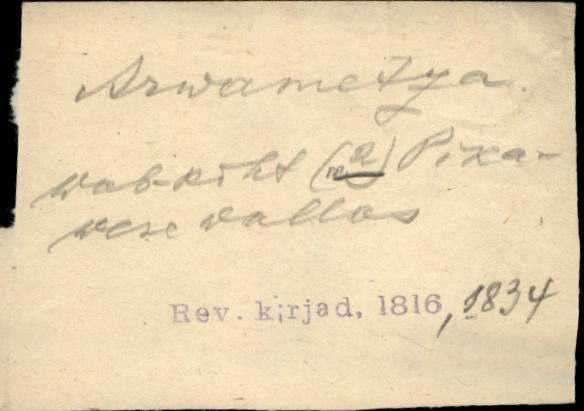 Arwametza.
wabrikt (2) Pixa-
vere vallas
Rev. kirjad, 1816, 1834